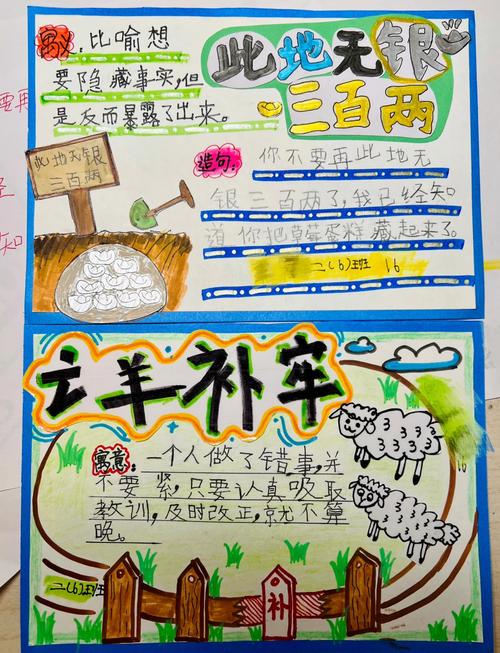 此地无银
三百两
寓义：比喻想
要隐藏事实，但
是反而暴露了出来。
此地无银
三百两
造句：你不要再此地无
银三百两了，我已经知
道你把草莓蛋糕藏起来了。
二(6)班 16
亡羊补牢
寓意：一个人做了错事，并
不要紧，只要认真吸取
教训，及时改正，就不算
晚。
16
二(6)班
补
要再
知